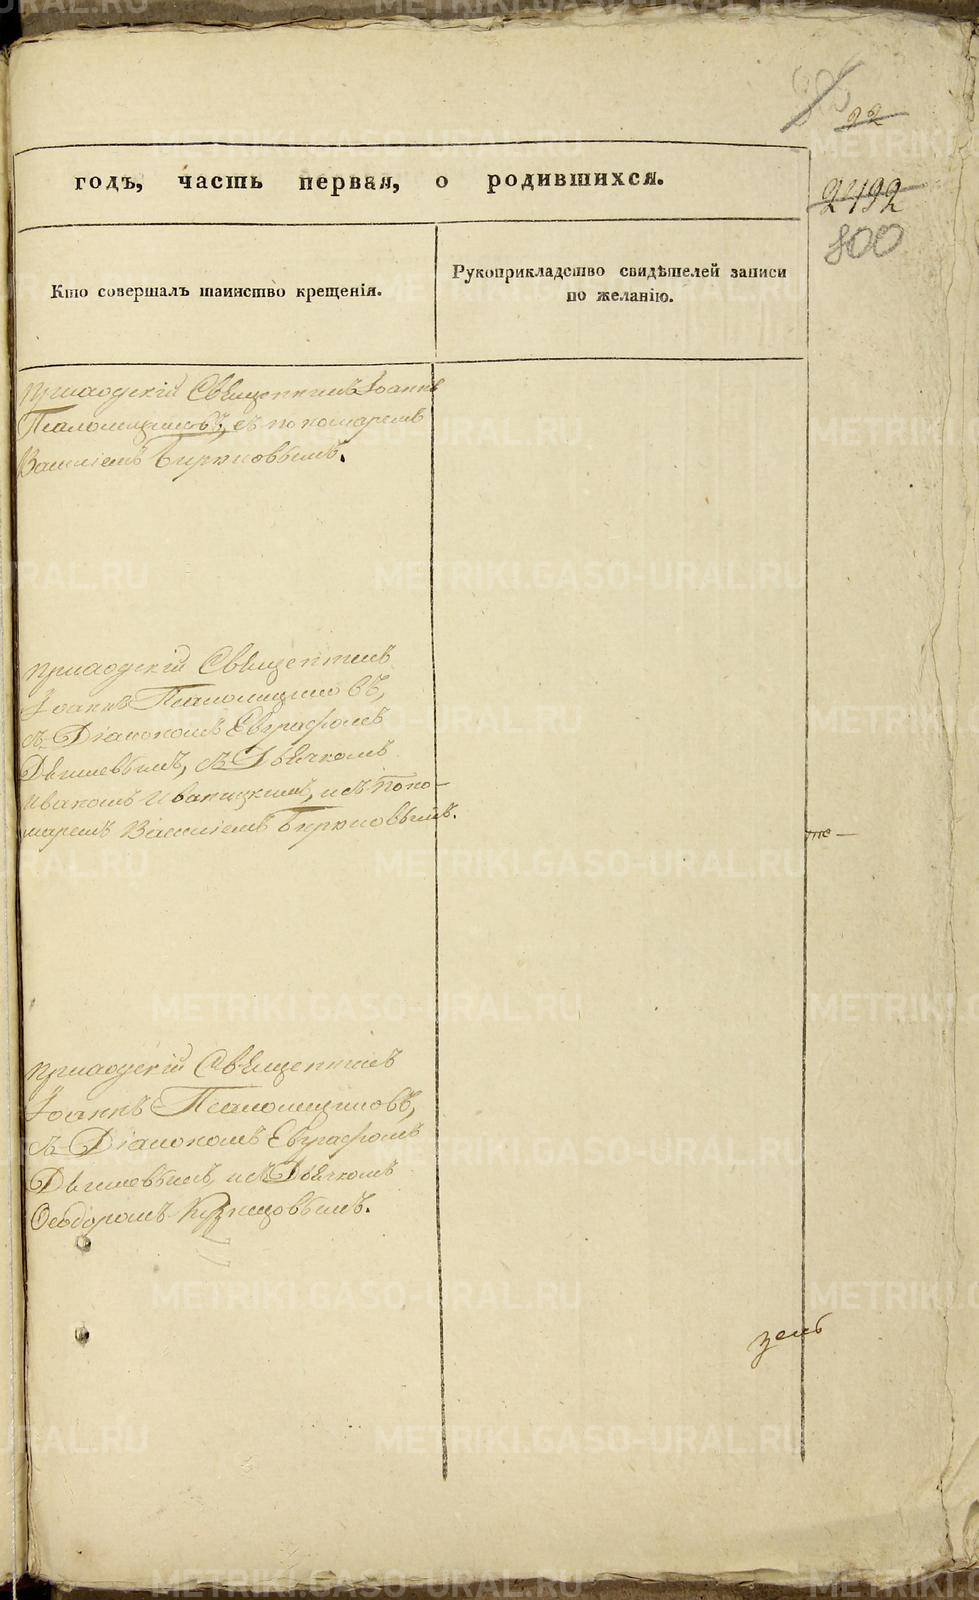 22
годъ, часть первая, о родившихся.
2492
800
Кто совершалъ таинство крещенія.
Рукоприкладство свидѣтелей записи
по желанію.
Приходскій Священникъ Іоаннъ
Псаломщиковъ, съ пономаремъ
Василіемъ Бирюковымъ.
Приходскій Священникъ
Іоаннъ Псаломщиковъ,
съ Діакономъ Евграфомъ
съ Дьячкомъ
Иваномъ Иваницкимъ, и съ Поно-
маремъ Василіемъ Бирюковымъ.
Приходскій Священникъ
Іоаннъ Псаломщиковъ,
съ Діакономъ Евграфомъ
и съ Дьячкомъ
Ѳеодоромъ Кузнецовымъ.
METRIKI.GASO-URAL.RU